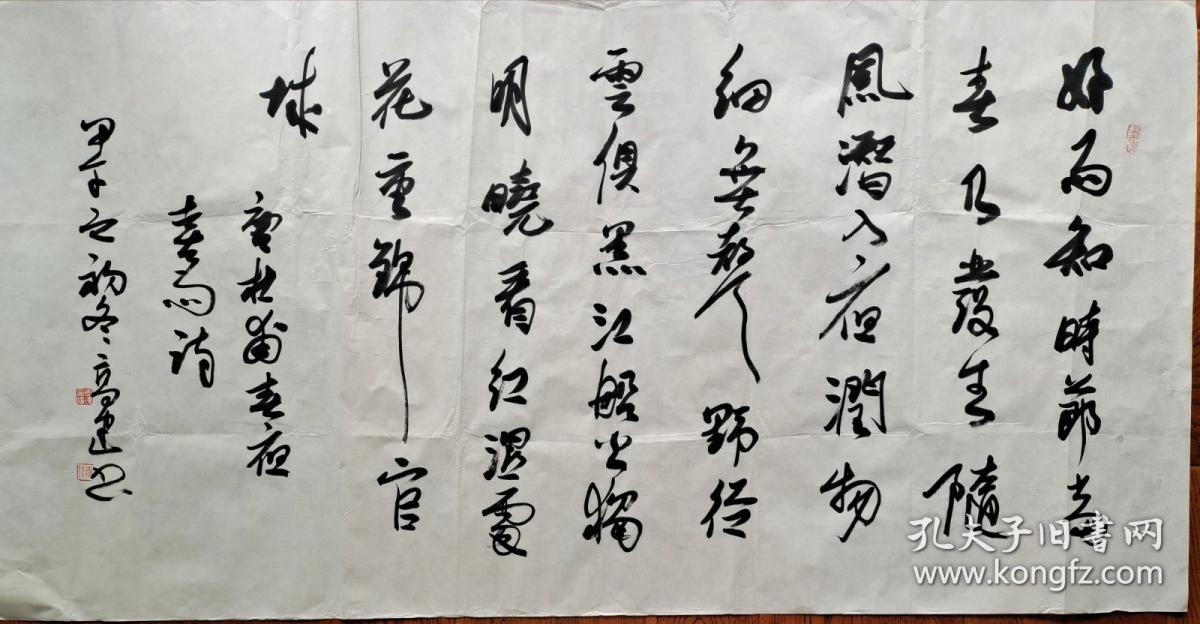 好雨知時節當
春乃發生隨
風潛入夜潤物
細無聲野徑
雲俱黑江船火獨
明曉看紅濕處
花重錦官
城
唐杜甫春夜
喜雨詩
甲午之初冬高建书
孔夫子旧书网
www.kongfz.com